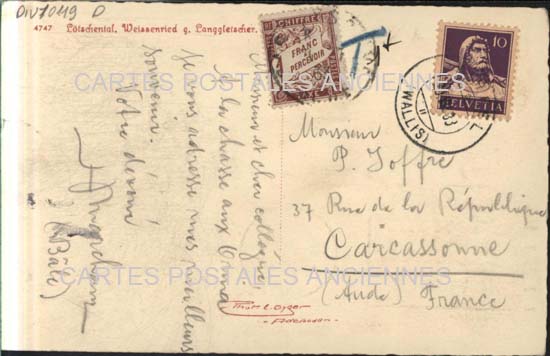 DIV7019 D
4747 Lötschental, Weissenried g. Langgletscher.
CHIFFRE
1 FRANC
A PERCEVOIR
TAXE
T
10
HELVETIA
(WALLIS)
CARTES POSTALES ANCIENNES
Monsieur et cher collègue,
A la chasse aux
je vous adresse mes meilleurs
souvenirs.
Votre dévoué
(Bâle)
Monsieur
P. Joffre
37 Rue de la République
Carcassonne
(Aude) France
CARTES POSTALES ANCIENNES